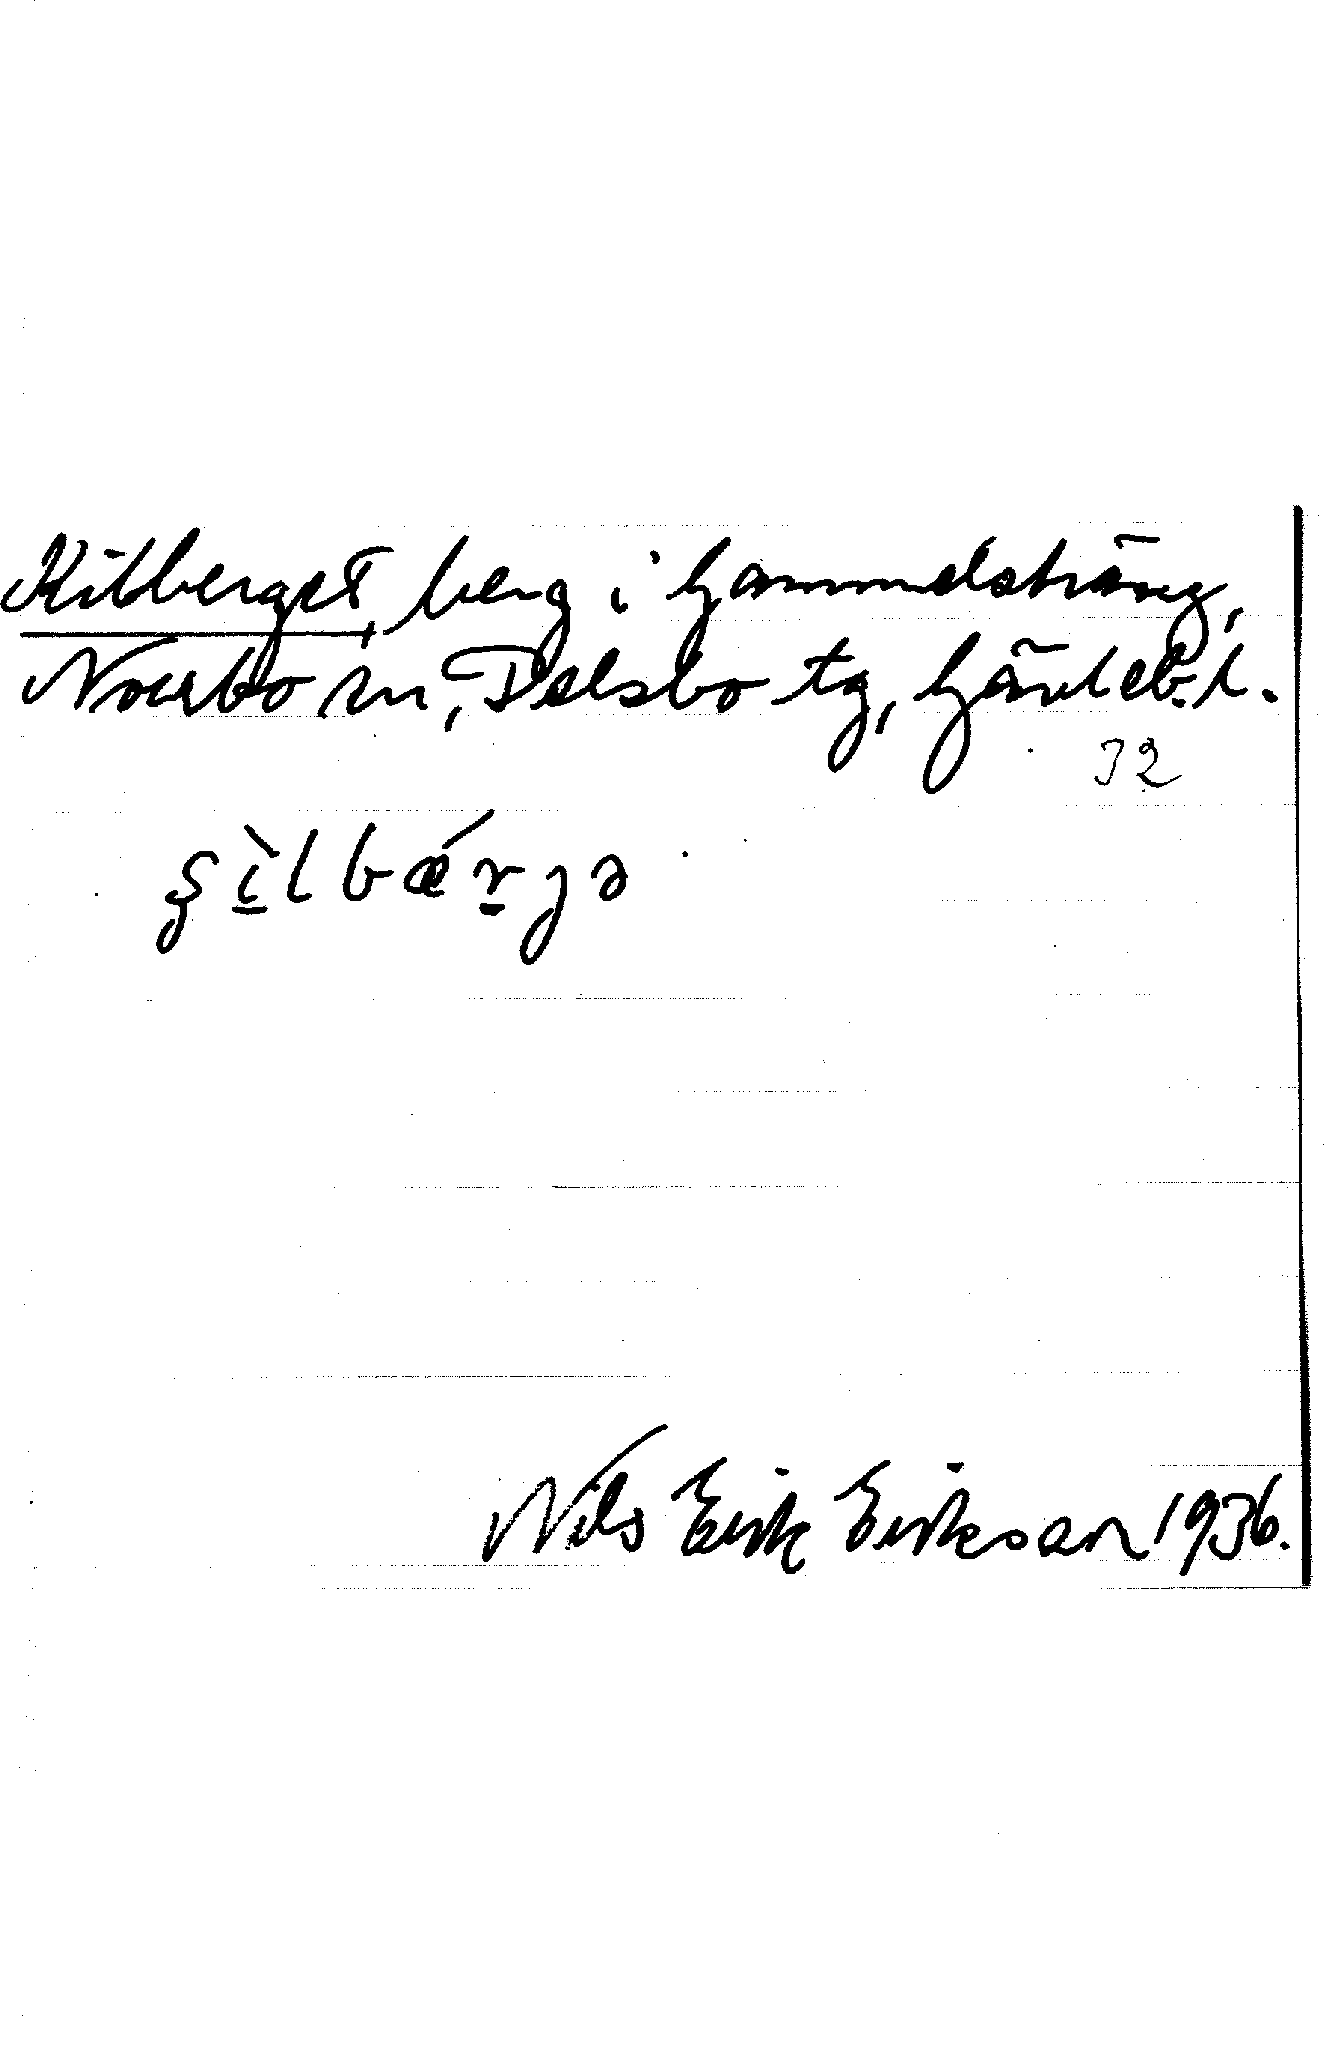 Kilberget, berg i Gammelsträng,
Norrbo sn, Delsbo tg, Gävleb. l.
32
ʂì̠lbǽr̠ɟə
Nils Erik Eriksson 1936.